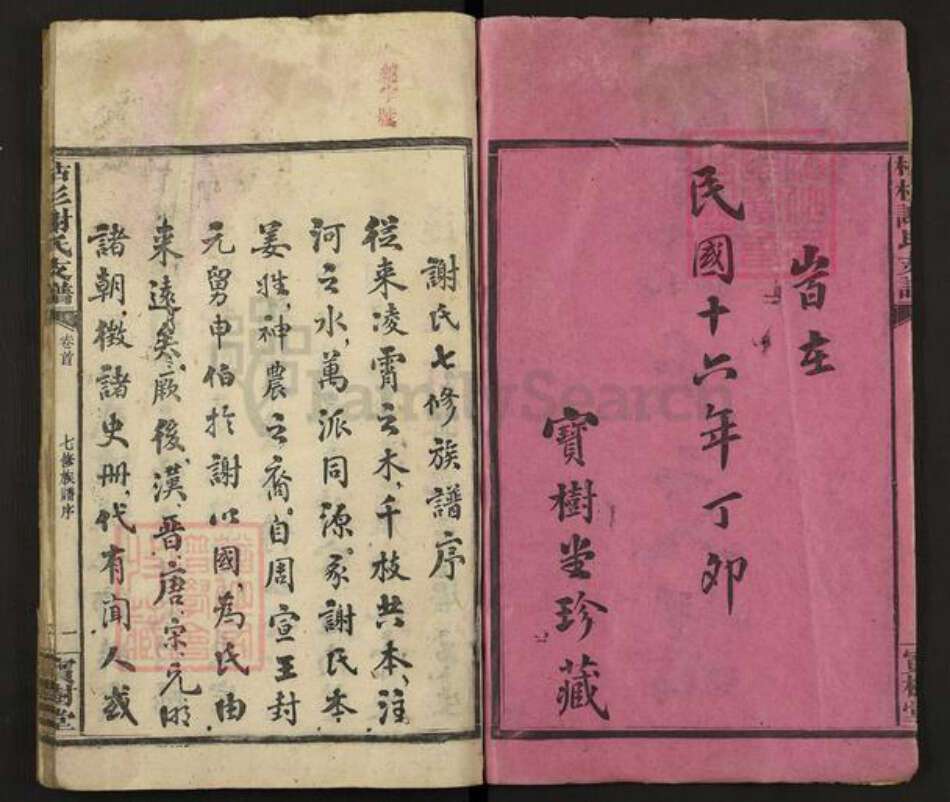 民國十六年丁卯
寶樹堂珍藏
謝氏支譜
寶樹堂
謝氏七修族譜序
從來凌霄之木,千枝共本,注
河之水,萬派同源,吾謝氏本
姜姓,神農之裔,自周宣王封
元舅申伯於謝以國,為氏由
來遠矣,厥後,漢,晋,唐,宋,元,明
諸朝,徵諸史册,代有聞人或
謝氏支譜
卷首
七修族譜序
一
寶樹堂
FamilySearch